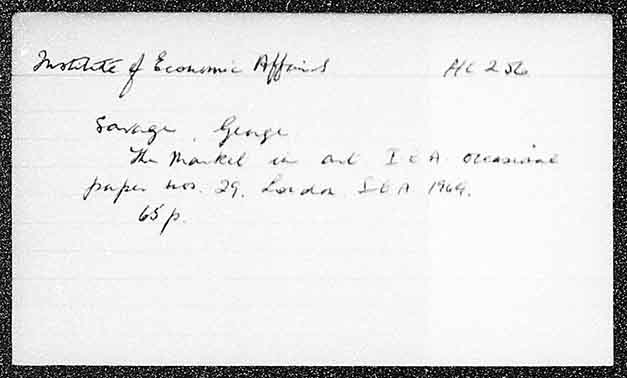 Institute of Economic Affairs HC 256
Savage, George
The Market in art I E A occasional
paper nos. 29. London I E A 1969.
65 p.